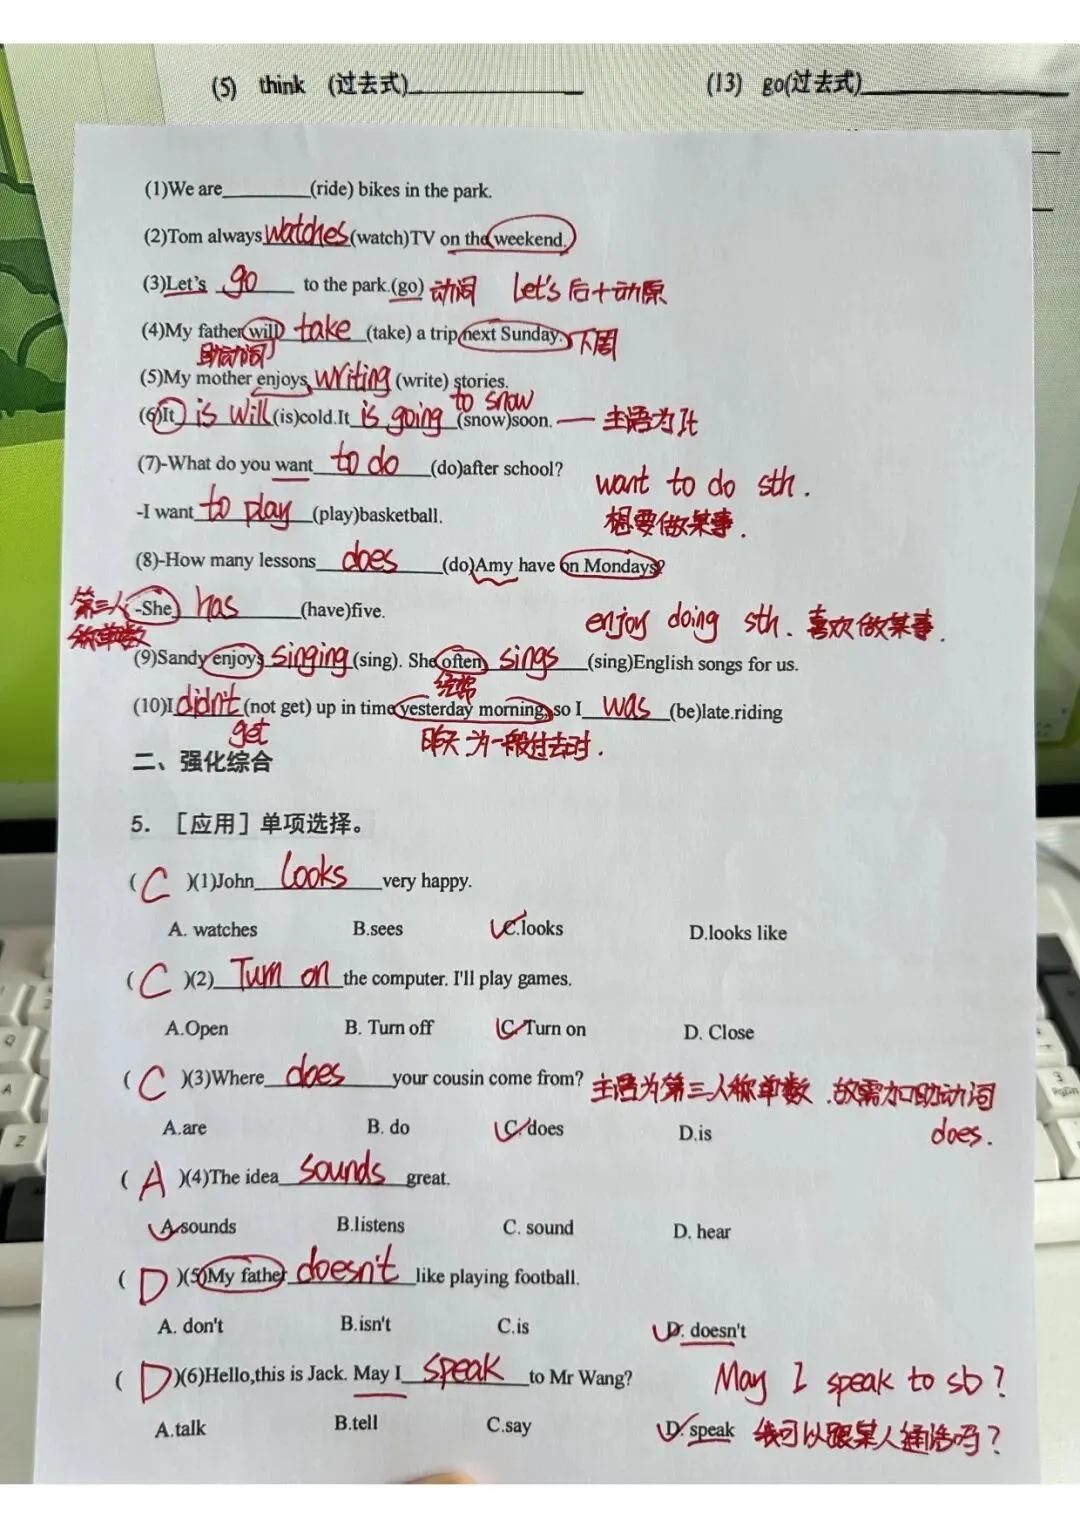 (5) think (过去式)__________ (13) go(过去式)__________
(1)We are________(ride) bikes in the park.
(2)Tom always watches (watch)TV on the weekend.
(3)Let's go to the park.(go) 动词 Let's 后+动原
(4)My father will take (take) a trip next Sunday. 下周
助动词
(5)My mother enjoys writing (write) stories.
to snow
(6)It is will (is)cold.It is going (snow)soon. — 主语为It
(7)-What do you want to do (do)after school?
want to do sth.
-I want to play (play)basketball.
想要做某事.
(8)-How many lessons does (do)Amy have on Mondays?
第三人称单数
-She has (have)five.
enjoy doing sth. 喜欢做某事.
(9)Sandy enjoys singing (sing). She often sings (sing)English songs for us.
经常
(10)I didn't (not get) up in time yesterday morning, so I was (be)late.riding
get
昨天为一般过去时.
二、强化综合
5. [应用] 单项选择。
( C )(1)John looks very happy.
A. watches B.sees C.looks D.looks like
( C )(2) Turn on the computer. I'll play games.
A.Open B. Turn off C.Turn on D. Close
( C )(3)Where does your cousin come from? 主语为第三人称单数.故需加助动词
does.
A.are B. do C.does D.is
( A )(4)The idea sounds great.
A.sounds B.listens C. sound D. hear
( D )(5)My father doesn't like playing football.
A. don't B.isn't C.is D. doesn't
( D )(6)Hello,this is Jack. May I speak to Mr Wang?
May I speak to sb?
A.talk B.tell C.say D. speak 我可以跟某人通话吗?